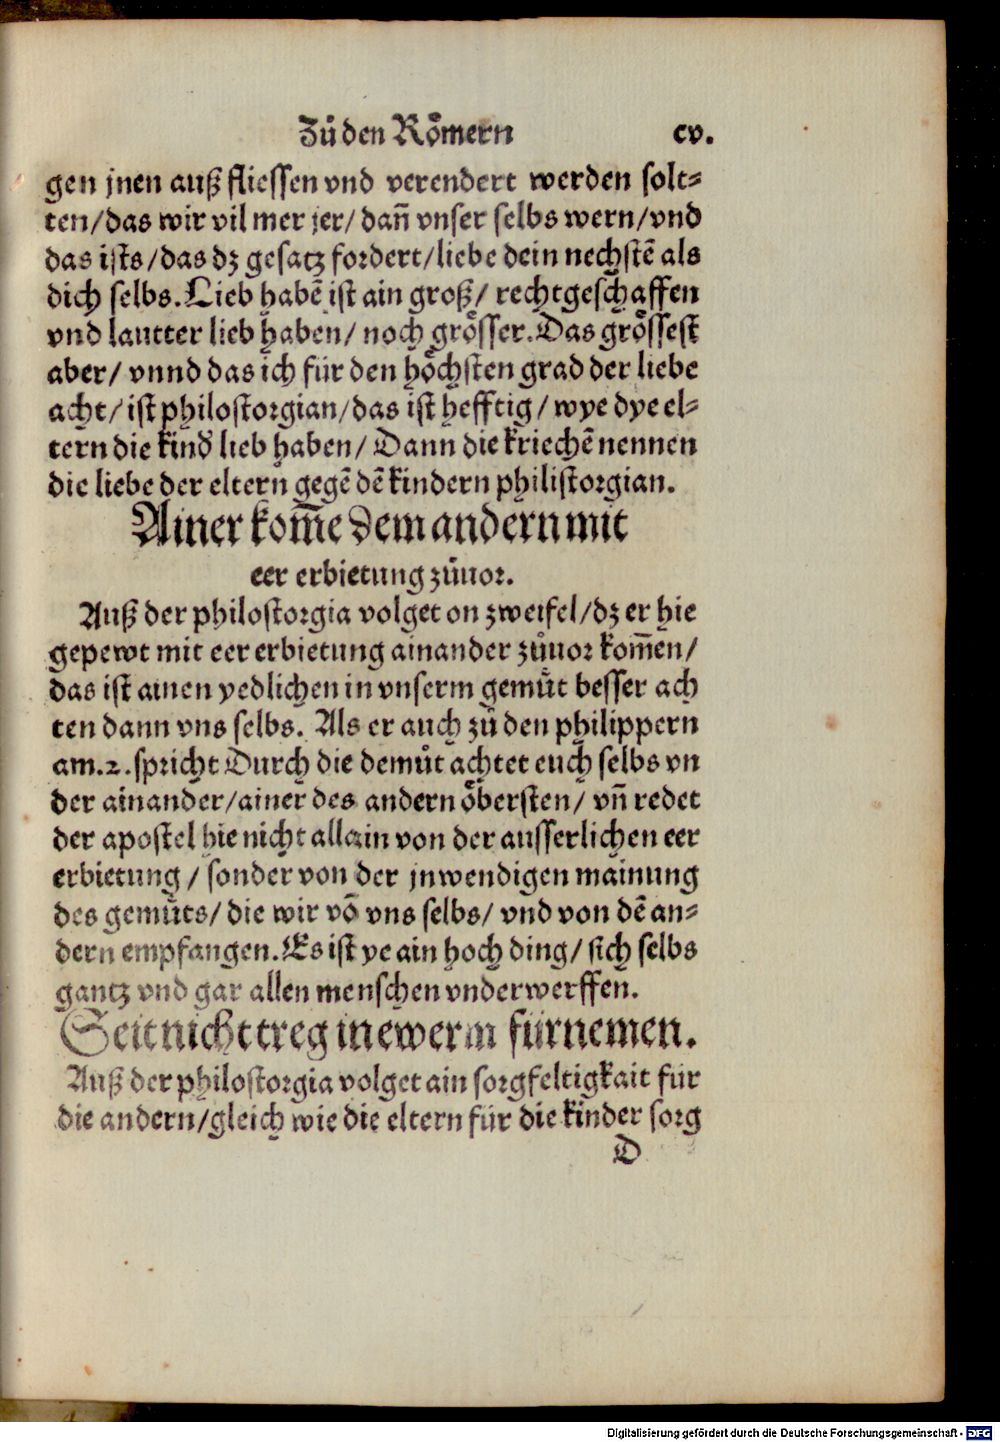 Zů den Roͤmern cv.
gen jnen auß fliessen vnd verendert werden solt⸗
ten/das wir vil mer jer/dañ vnser selbs wern/vnd
das ists/das dz gesatz fordert/liebe dein nechstẽ als
dich selbs. Lieb habẽ ist ain groß/ rechtgeschaffen
vnd lautter lieb haben/ noch groͤsser. Das groͤssest
aber/ vnnd das ich für den hoͤchsten grad der liebe
acht/ ist philostorgian/das ist hefftig/ wye dye el⸗
tern die kind̕ lieb haben/ Dann die kriechẽ nennen
die liebe der eltern gegẽ dẽ kindern philistorgian.
Ainer kom̃e dem andern mit
eer erbietung zůuor.
Auß der philostorgia volget on zweifel/dz er hie
gepewt mit eer erbietung ainander zůuor kom̃en/
das ist ainen yedlichen in vnserm gemůt besser ach
ten dann vns selbs. Als er auch zů den philippern
am.2. spricht Durch die demůt achtet euch selbs vn
der ainander/ainer des andern oͤbersten/ vñ redet
der apostel hie nicht allain von der ausserlichen eer
erbietung / sonder von der jnwendigen mainung
des gemůts/ die wir võ vns selbs/ vnd von dẽ an⸗
dern empfangen. Es ist ye ain hoch ding/ sich selbs
gantz vnd gar allen menschen vnderwerffen.
Seit nicht treg in ewerm fürnemen.
Auß der philostorgia volget ain sorgfeltigkait für
die andern/gleich wie die eltern für die kinder sorg
D
Digitalisierung gefördert durch die Deutsche Forschungsgemeinschaft - DFG